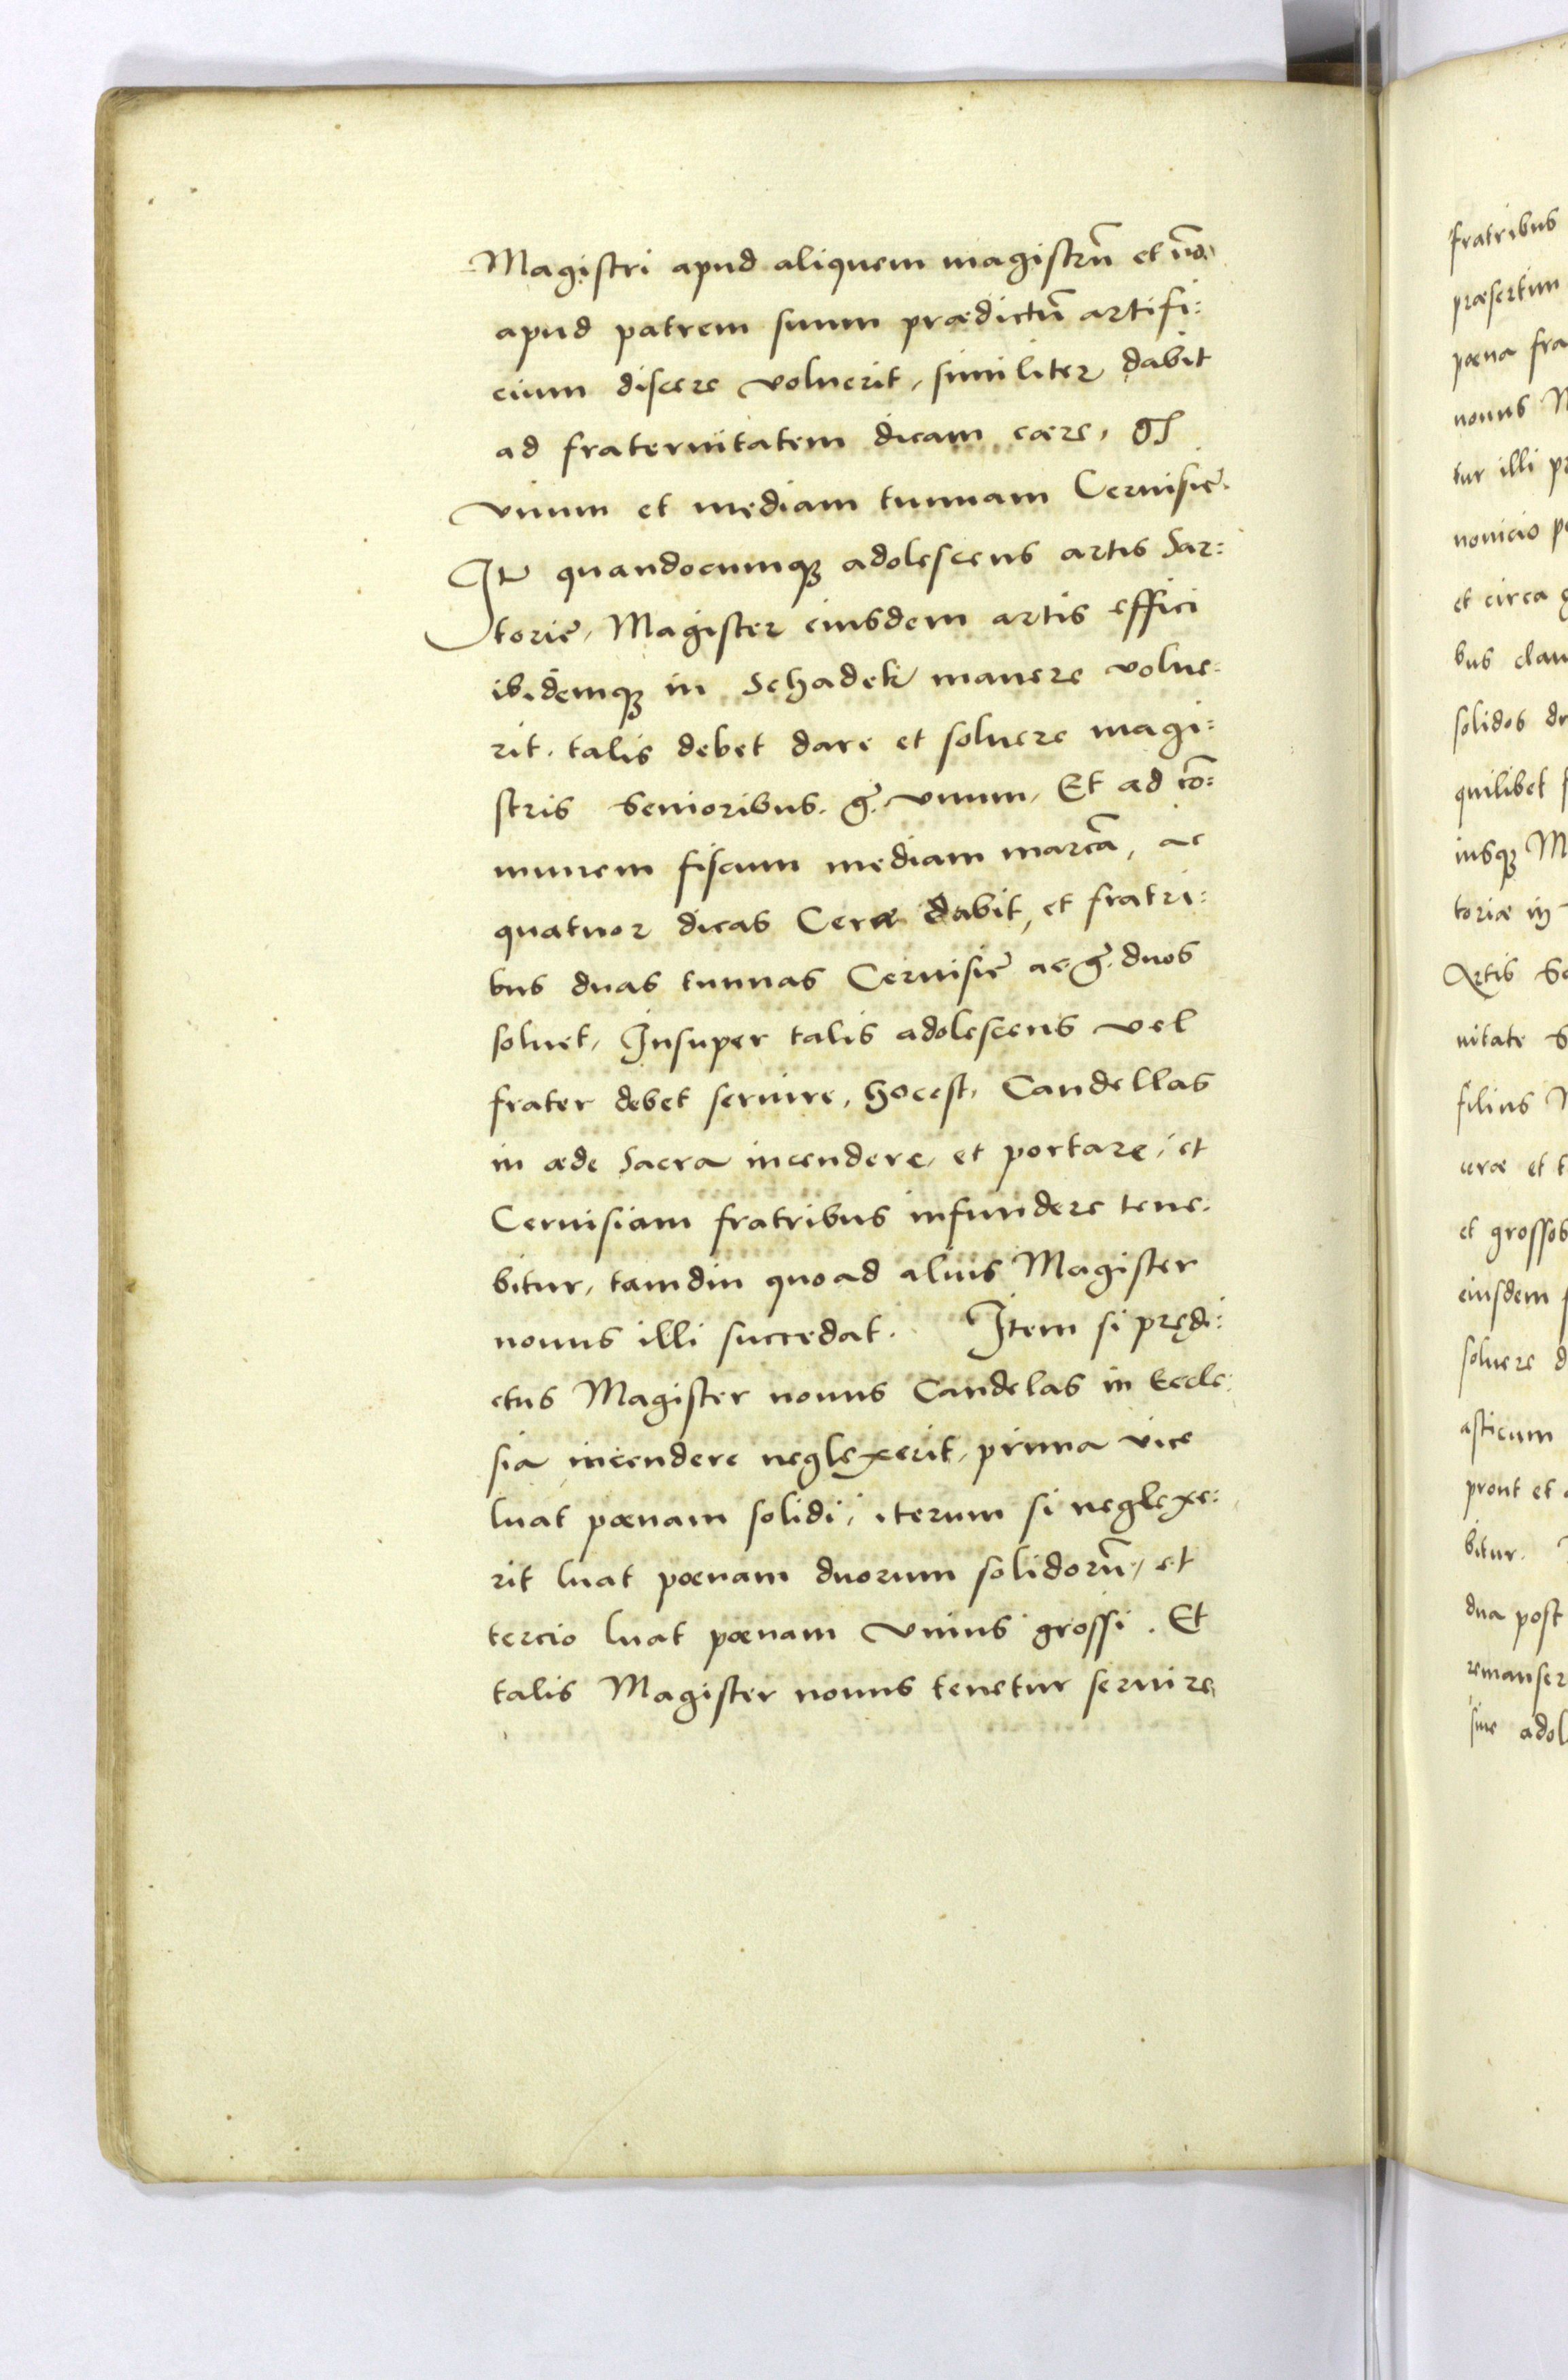 Magistri apud aliquem magistrū et nō
apud patrem suum prædictū artifi:
cium discere voluerit, similiter dabit
ad fraternitatem dicam cære, gſ
vnum et mediam tunnam Ceruisię.
Itē quandocumqꝫ adolescens artis Sar:
torię, Magister eiusdem artis effici
ibidemqꝫ in Schadek manere volue:
rit. talis debet dare et soluere magi:
stris Senioribus. g̃. vnum, Et ad cō:
munem fiscum mediam marcā, ac
quatuor dicas Ceræ dabit, et fratri:
bus duas tunnas Ceruisię ac g̃. duos
soluet, Insuper talis adolescens vel
frater debet seruire, hoc est, Candellas
in æde Sacra incendere, et portare, et
Ceruisiam fratribus infundere tene:
bitur, tamdiu quoad alius Magister
nouus illi succedat. Item si prędi:
ctus Magister nouus Candelas in Eccle:
sia incendere neglexerit, prima vice
luat pœnam solidi, iterum si neglexe:
rit luat pœnam duorum solidorū, et
tercio luat pœnam vnius grossi. Et
talis Magister nouus tenetur seruire
fratribus
præsertim
pœna fra
nouus M
tur illi pr
nouicio p
et circa g
bus clau
solidos d
quilibet
iusqꝫ M
toriæ in
Artis Se
nitate S
filius M
ceræ et t
et grossos
eiusdem
soluere d
asticum
prout et
bitur.
dua post
remanser
siue adol